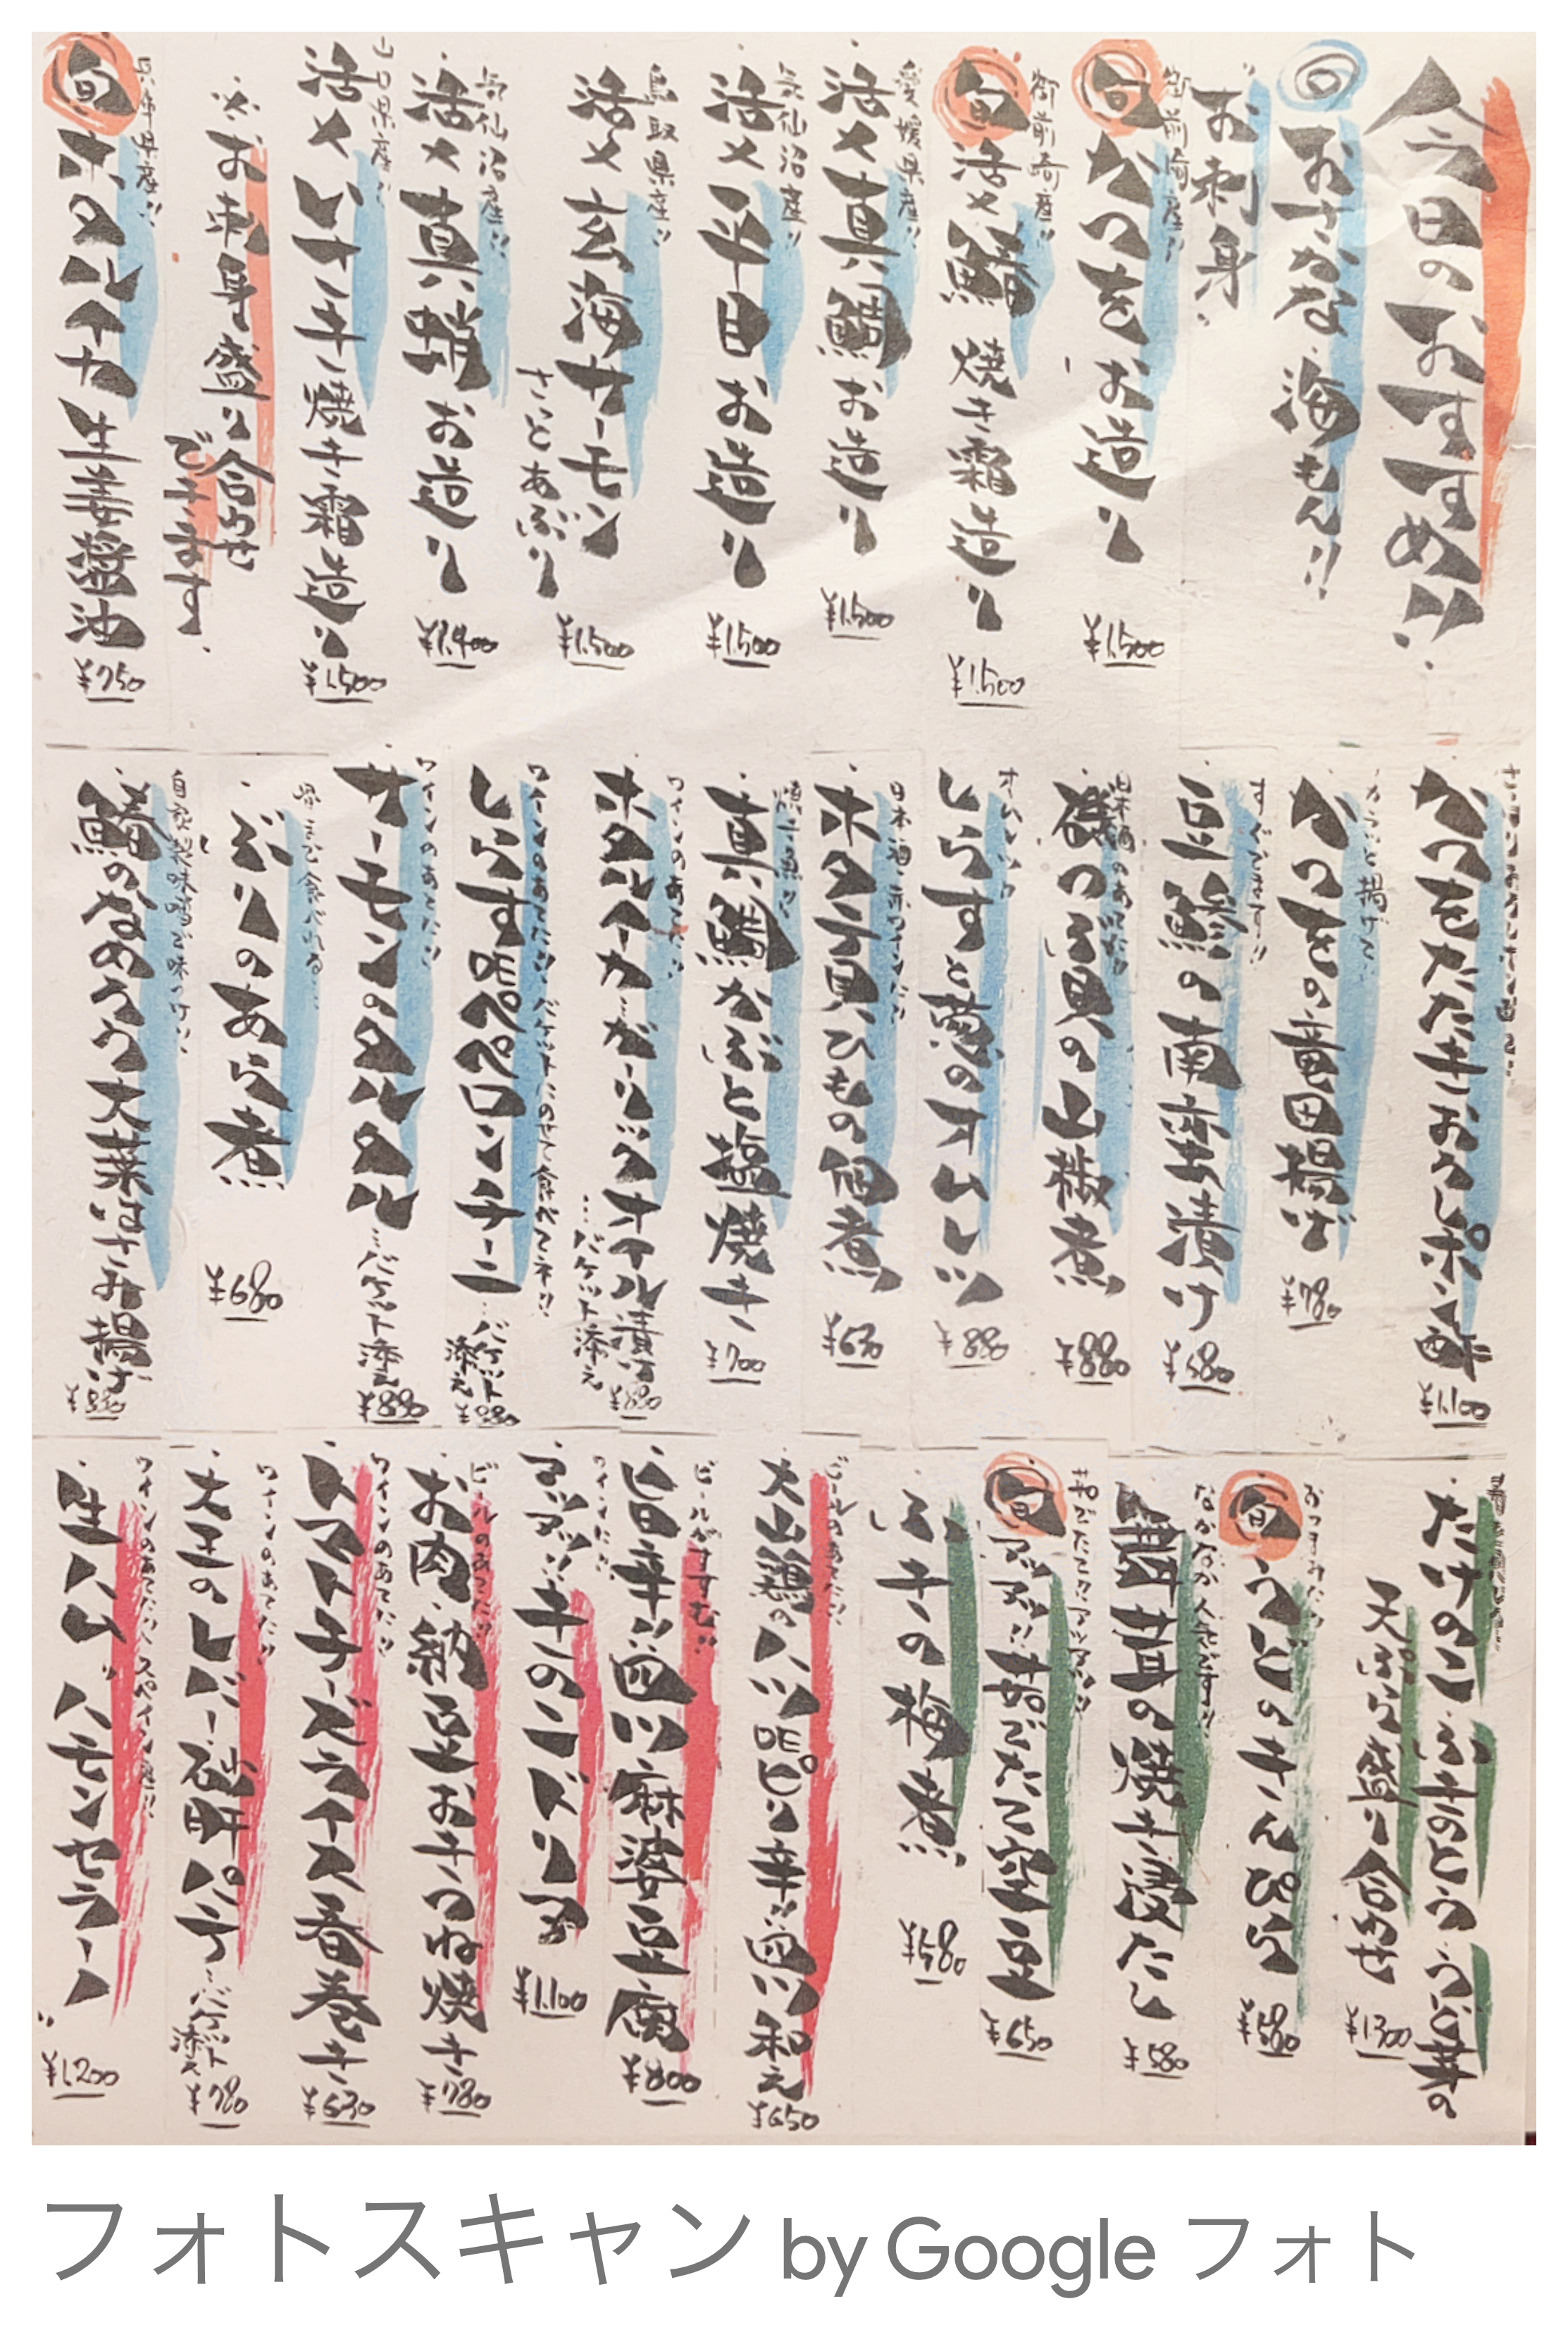 今日のおすすめ!!
旬 おさかな・海もん!!
お刺身
御前崎産!!
旬 かつをお造り
¥1,500
御前崎産!!
旬 活〆鰆 焼き霜造り
¥1,500
愛媛県産!!
活〆真鯛お造り
¥1,500
気仙沼産!!
活〆平目お造り
¥1,500
鳥取県産!!
活〆玄海サーモン
さっとあぶり
¥1,500
気仙沼産!!
活〆真蛸お造り
¥1,400
活〆いサキ焼き霜造り
¥1,500
※お刺身盛り合わせ
できます
兵庫県産!!
旬 ホタルイカ生姜醤油
¥750
かつをたたきおろしポン酢
¥1,100
カラッと揚げて
かつをの竜田揚げ
¥780
すぐでます!!
豆鯵の南蛮漬け
¥580
日本酒のあてだ!!
磯つぶ貝の山椒煮
¥880
しらすと葱のオムレツ
¥880
ホタテ貝ひもの佃煮
¥630
真鯛かぶと塩焼き
¥700
ワインのあてだ!!
ホタルイカ・ガーリックオイル漬け
…バケット添え
¥880
ワインのあてだ!!バケットにのせて食べてネ!!
しらすDEペペロンチーニ
…バケット添え
¥880
ワインのあてだ!!
サーモンのタルタル…バケット添え
¥880
ぶりのあら煮
¥680
自家製味噌で味つけ!!
鰆のなめろう大葉はさみ揚げ
¥880
たけのこ・ふきのとう・うど芽の
天ぷら盛り合わせ
¥1,300
おつまみだ!!
旬 うどのきんぴら
¥580
なかなか人気です!!
舞茸の焼き浸だし
¥580
茹でたて!!アツアツ!!
旬 アツアツ!!茹でたて空豆
¥650
ふきの梅煮
¥580
ビールのあてだ!!
大山鶏のハツDEピリ辛!!四川和え
¥650
ビールがすすむ!!
旨辛!!四川麻婆豆腐
¥800
アツアツ!!キのコドリア
¥1,100
ビールのあてだ!!
お肉・納豆おきつね焼き
¥780
ワインのあてだ!!
トマトチーズライス春巻き
¥630
ワインのあてだ!!
大王のレバー・砂肝パテ…バケット添え
¥780
ワインのあてだ!!スペイン産!!
生ハム"ハモンセラーノ"
¥1,200
フォトスキャン by Google フォト